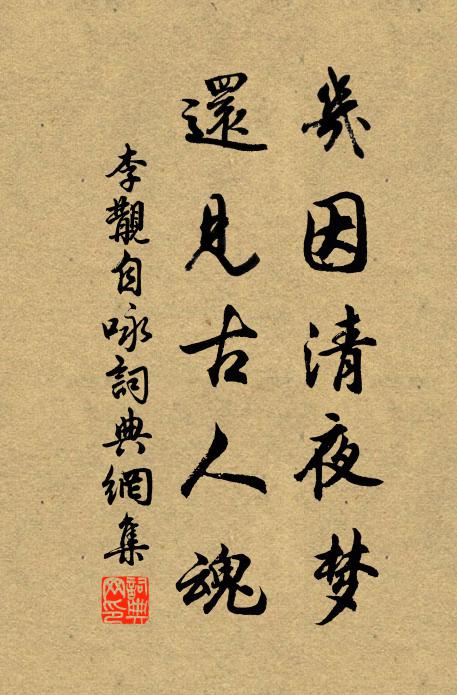 幾因清夜梦
還見古人魂
李覯自咏詞典網集
詞典网印